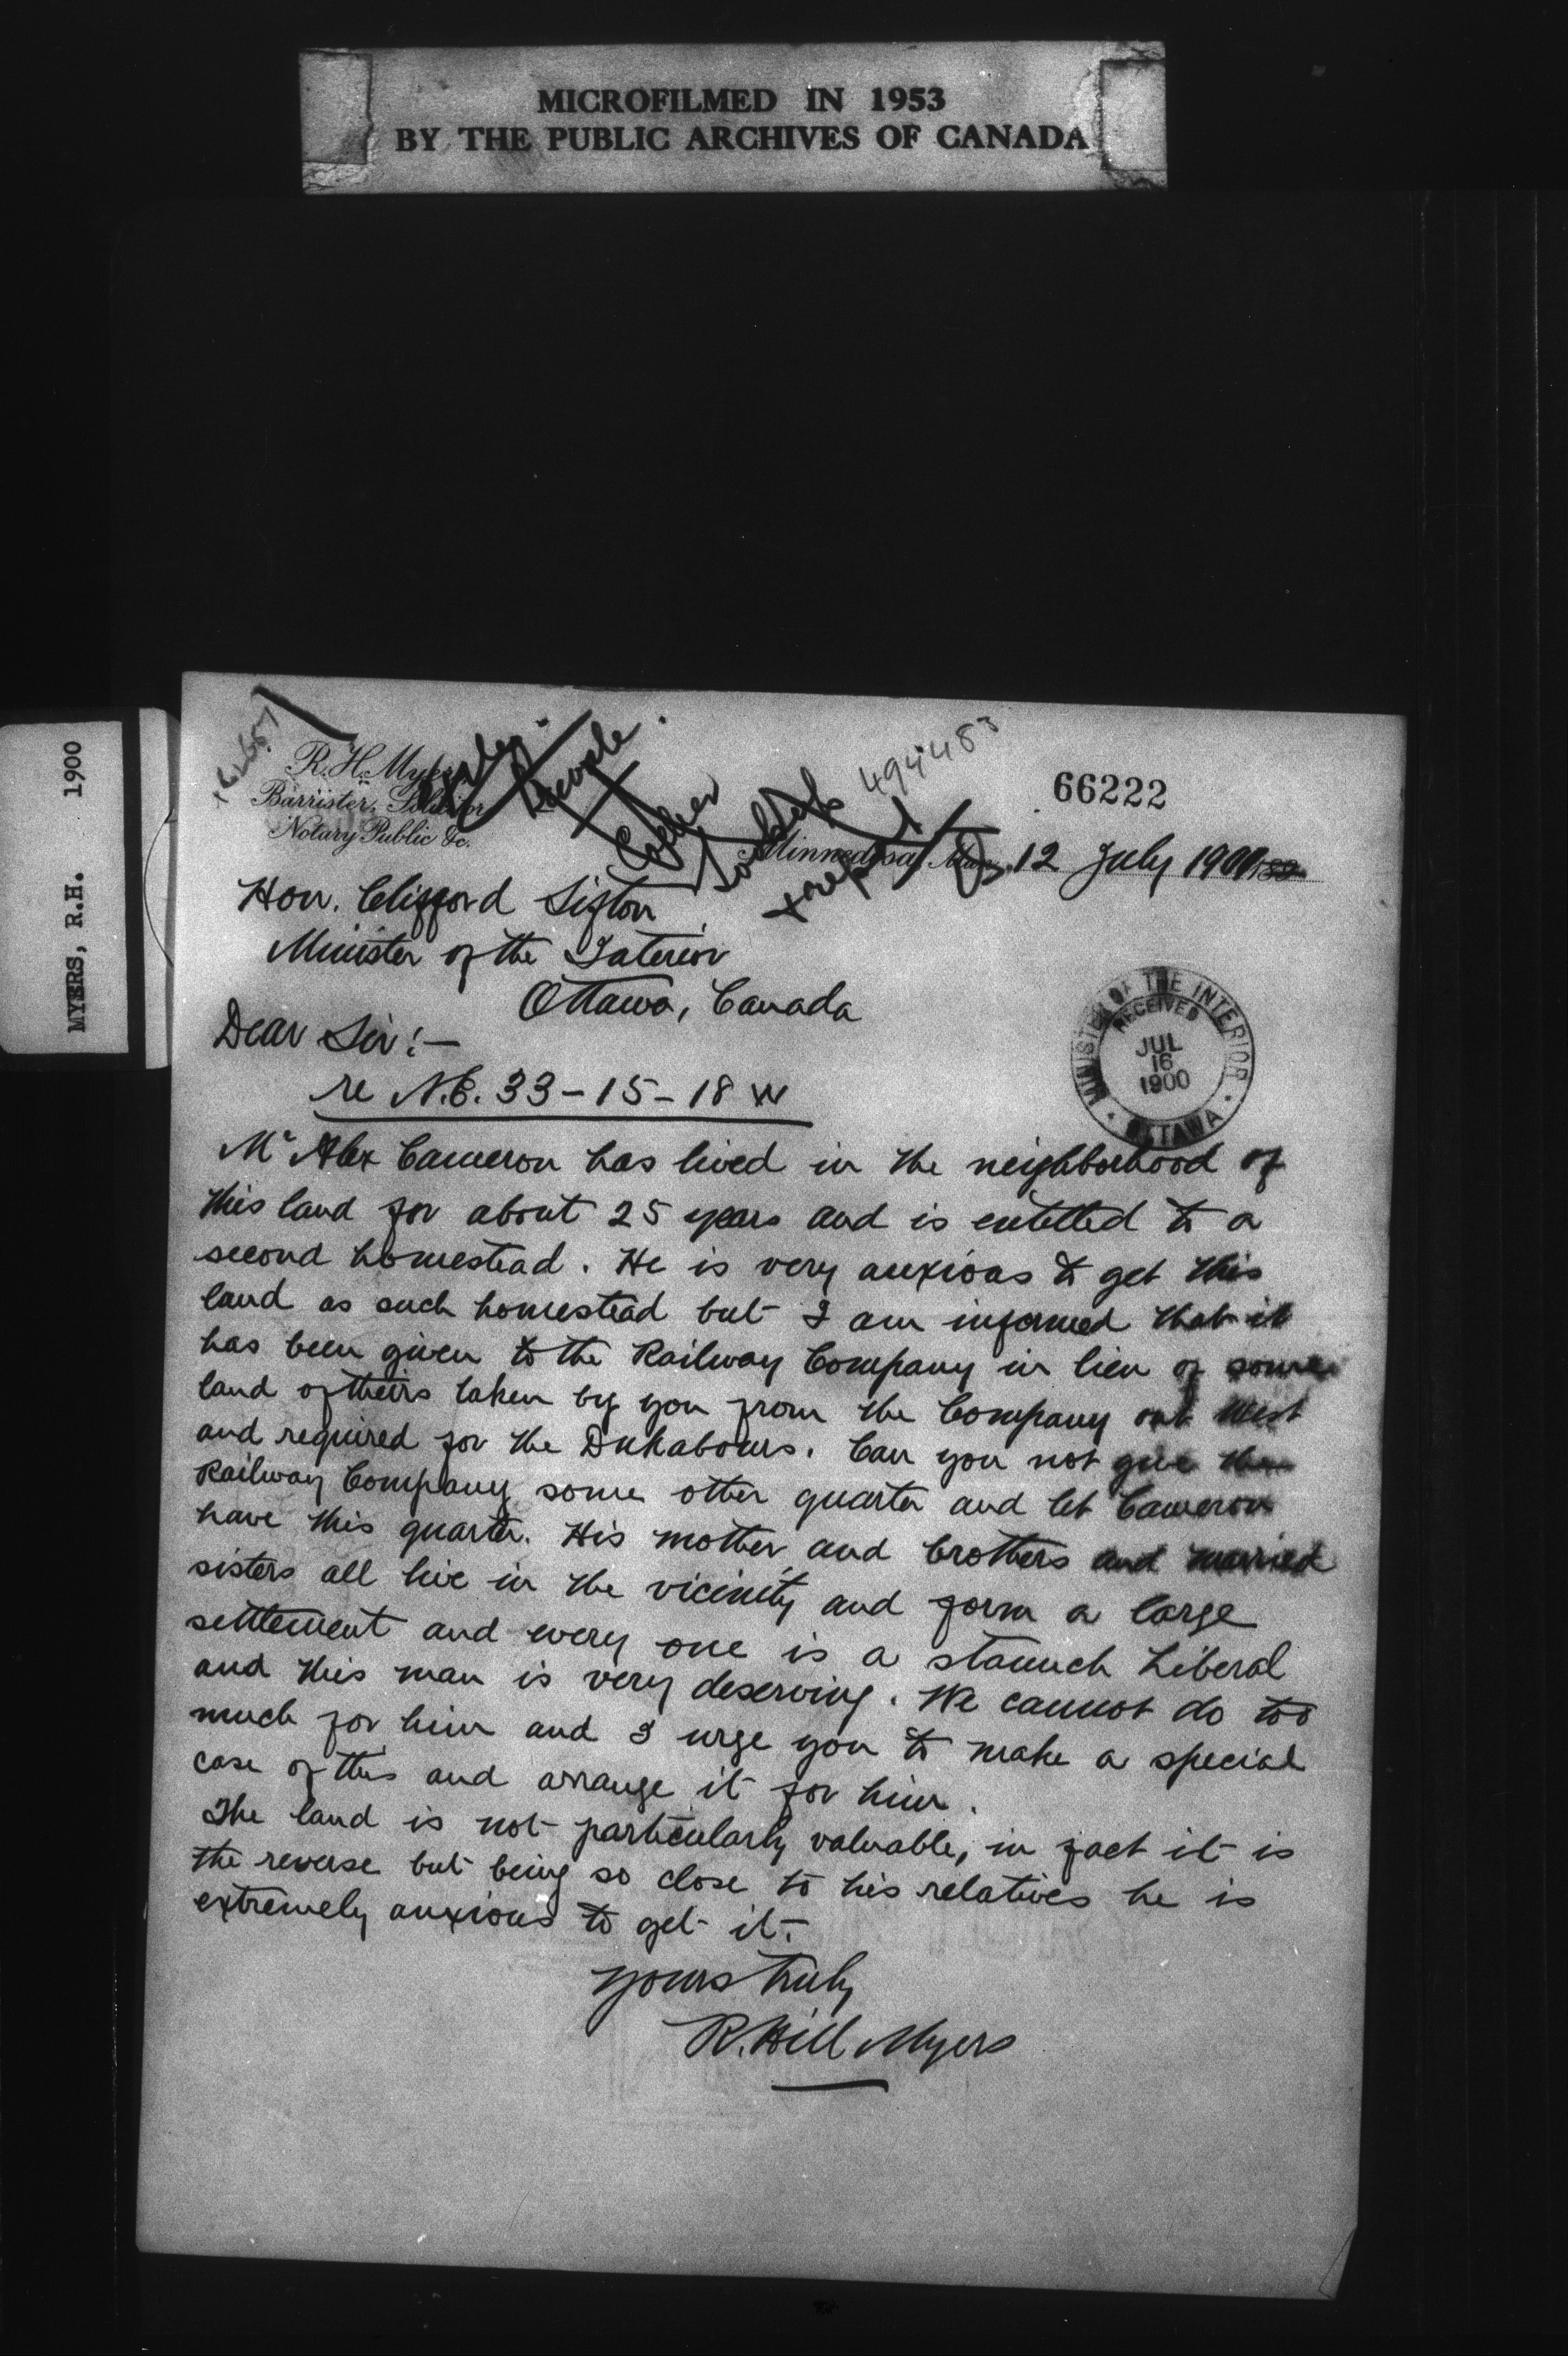 MICROFILMED IN 1953
BY THE PUBLIC ARCHIVES OF CANADA
MYERS, R.H. 1900
R. H. Myers
Barrister, Solicitor
Notary Public &c.
494483
66222
Minnedosa, Man. 12 July 1900
Hon. Clifford Sifton
Minister of the Interior
Ottawa, Canada
MINISTER OF THE INTERIOR
RECEIVED
JUL
16
1900
OTTAWA
Dear Sir:—
re N.E. 33-15-18 W
Mr Alex Cameron has lived in the neighborhood of
this land for about 25 years and is entitled to a
second homestead. He is very anxious to get this
land as such homestead but I am informed that it
has been given to the Railway Company in lieu of some
land of theirs taken by you from the Company out West
and required for the Dukabours. Can you not give the
Railway Company some other quarter and let Cameron
have this quarter. His mother and brothers and married
sisters all live in the vicinity and form a large
settlement and every one is a staunch Liberal
and this man is very deserving. We cannot do too
much for him and I urge you to make a special
case of this and arrange it for him.
The land is not particularly valuable, in fact it is
the reverse but being so close to his relatives he is
extremely anxious to get it.
Yours truly
R. Hill Myers